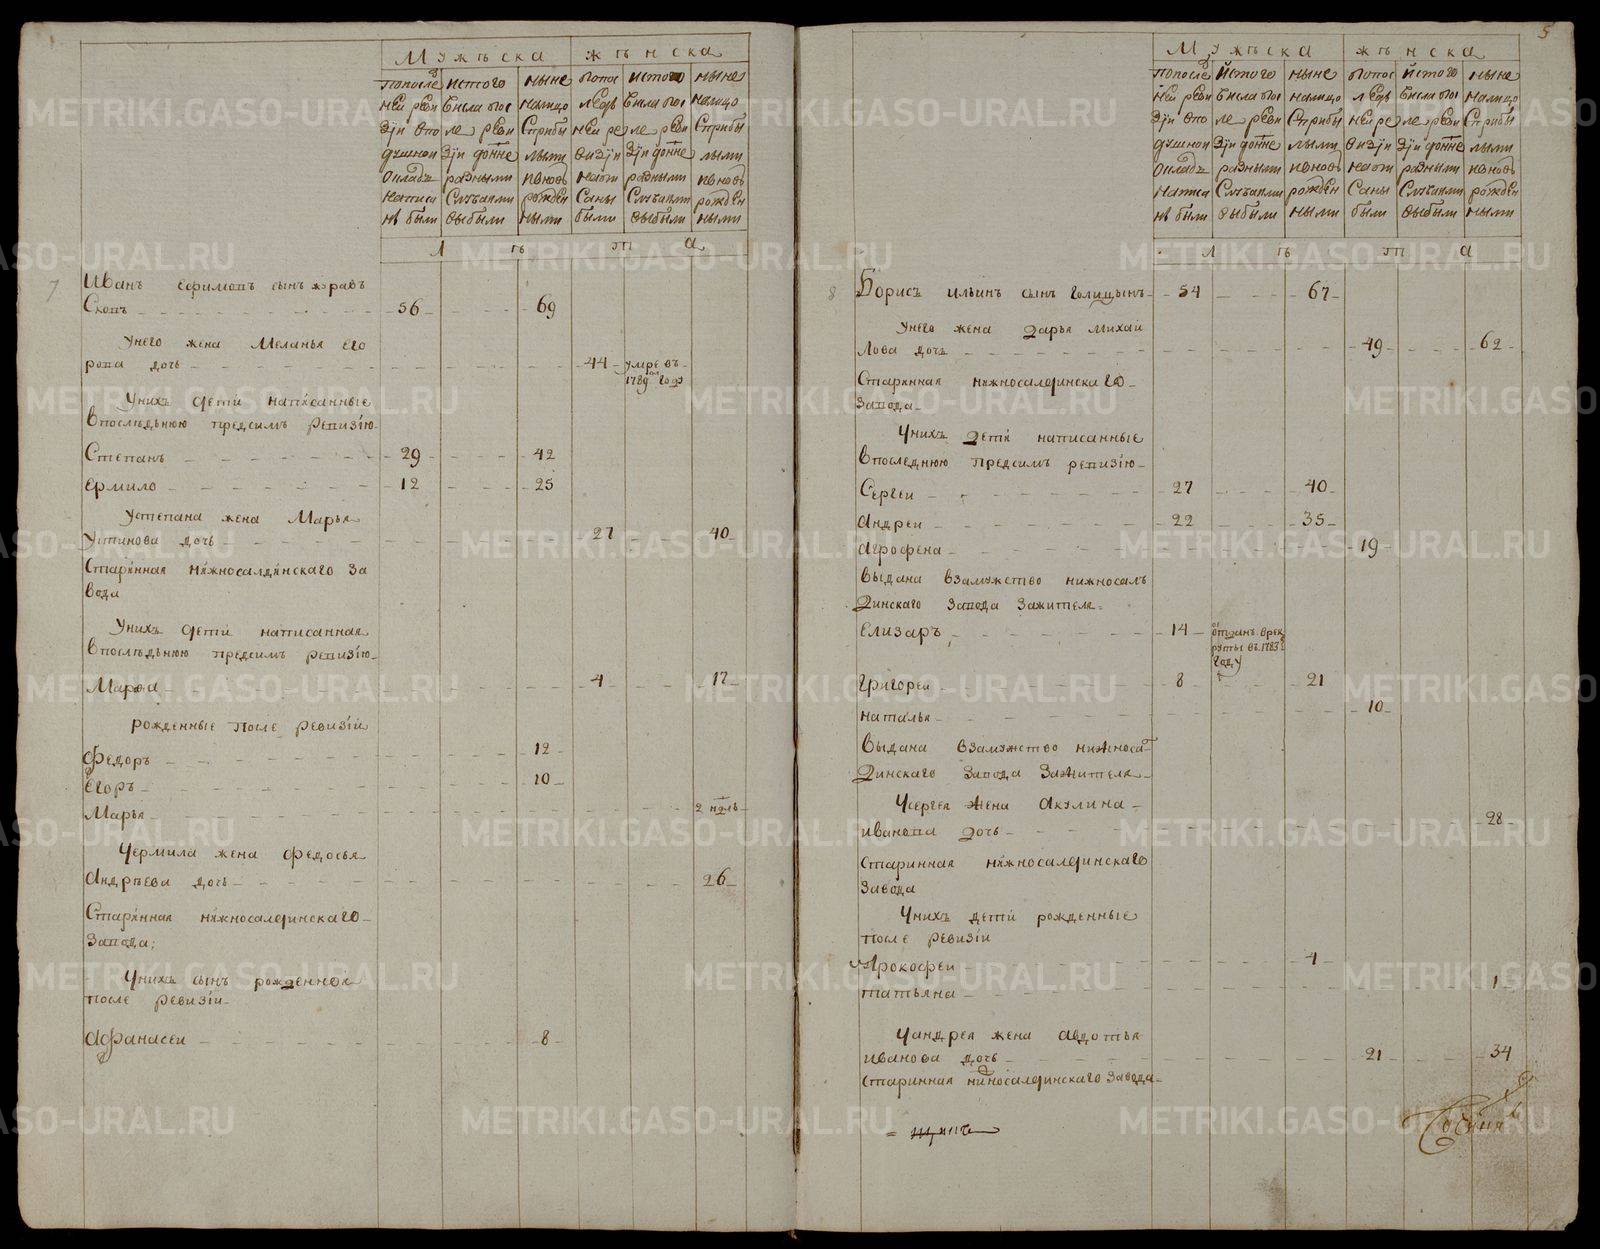 Мужеска женска
Попосле дней ревизiи вподушной окладъ написаны были
Истого числа после ревизiи донне разными случаями выбыли
Ныне налицо сприбылыми ивновь рожденными
Попоследней ревизiи написаны были
Истого числа после ревизiи донне разными случаями выбыли
Ныне налицо сприбылыми ивновь рожденными
Л ѣ т а
7
Иванъ Ефимовъ сынъ журавъ
Сковъ 56 69
Унего жена Меланья Его
рова дочь 44 умре въ
1789 м годэ
Унихъ дети написанные
впоследьнюю предсимъ ревизiю
Степанъ 29 42
Ермило 12 25
Устепана жена Марья
Устинова дочь 27 40
Старинная нижносалдинскаго за
вода
Унихъ дети написанная
впоследьнюю предсимъ ревизiю
Марфа 4 17
рожденные после ревизiи
Федоръ 12
Егоръ 10
Марья 2 недѣль
Уермила жена Федосья
Андреева дочь 26
Старинная нижносалдинскаго
завода;
Унихъ сынъ рожденной
после ревизiи
Афанасеи 8
5
Мужеска женска
Попосле дней ревизiи вподушной окладъ написаны были
Истого числа после ревизiи донне разными случаями выбыли
Ныне налицо сприбылыми ивновь рожденными
Попоследней ревизiи написаны были
Истого числа после ревизiи донне разными случаями выбыли
Ныне налицо сприбылыми ивновь рожденными
Л ѣ т а
8
Борисъ ильинъ сынъ голицынъ 54 67
Унего жена дарья михаи
лова дочь 49 62
Старинная нижносалдинскаго
завода
Унихъ дети написанные
впоследнюю предсимъ ревизiю
Сергеи 27 40
Андреи 22 35
Агрофена 19
выдана взамужство нижносалъ
динскаго завода зажителя
Елизаръ 14 отданъ врек
руты въ 1783 м
году
Григореи 8 21
Наталья 10
Выдана взамужство нижносал
динскаго завода зажителя
Усергея жена Акулина
иванова дочь 28
Старинная нижносалдинскаго
завода
Унихъ дети рожденные
после ревизiи
Прокофеи 4
Татьяна 1
Уандрея жена Авдотья
иванова дочь 21 34
Старинная нижносалдинскаго завода